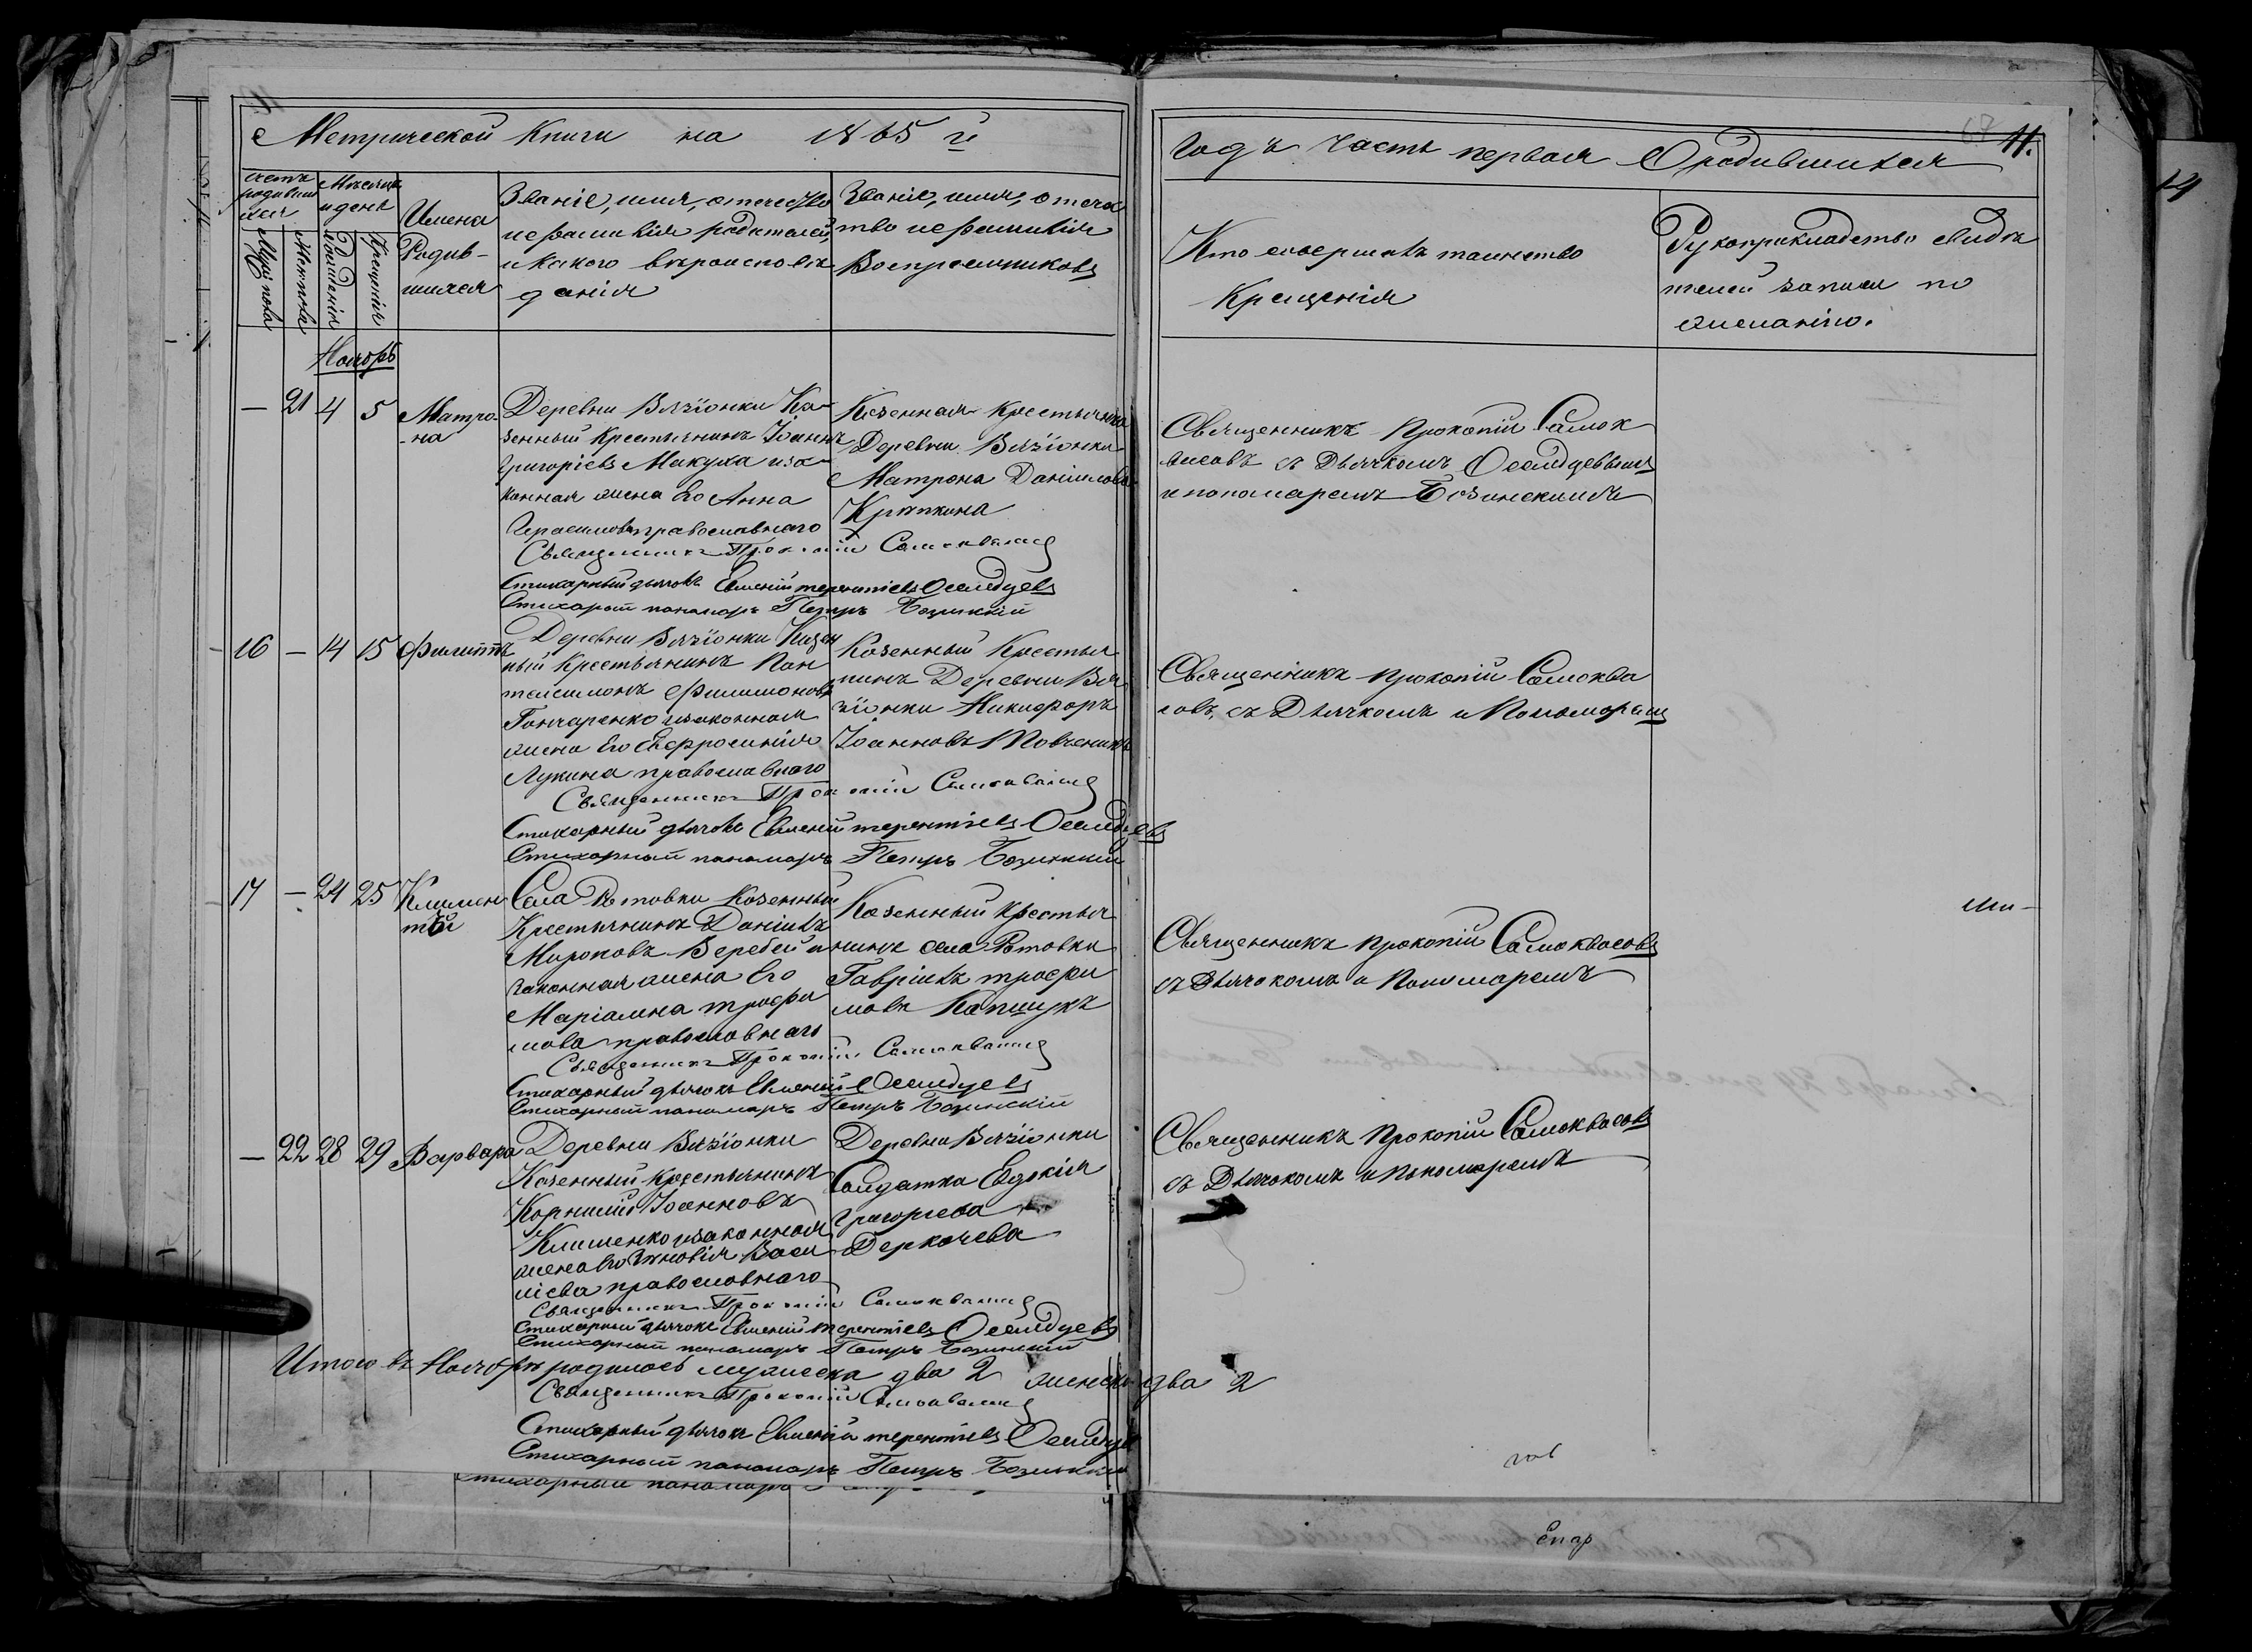 Метрической Книги на 1865 й
Годъ Часть первая О родившихся 11.
Счетъ родившихся
Мужеска пола
Женска
Мѣсяцъ и день
Рожденія
Крещенія
Имена
Родив-
шихся
Званіе, имя, отечество
и фамилія родителей,
и какого вѣроисповѣ
данія
Званіе, имя, отече
тво и фамилія
Воспріемниковъ
Кто совершалъ таинство
Крещенія
Рукоприкладство свидѣ
телей записи по
желанію.
Ноябрь
— 21 4 5
Матро-
на
Деревни Вязіонки Ка-
зенный Крестьянинъ Іоаннъ
Григоріевъ Макуха и за-
конная жена Его Анна
Герасимова православнаго
Казенная Крестьянка
Деревни Вязіонки
Матрона Даніилова
Крапкина
Священникъ Прокопій Самок
васовъ съ Дьячкомъ Оселедцевымъ
и пономаремъ Бозинскимъ
Священникъ Прокопій Самоквасовъ
Стихарный дьячокъ Евменій терентіевъ Оселедцевъ
Стихарный панамарь Петръ Бозинскій
16 — 14 15
Филиппъ
Деревни Вязіонки Казен
ный Крестьянинъ Пан
телеимонъ Филимоновъ
Гончаренко и законная
жена Его Евфросинія
Лукина православнаго
Казенный Крестья
нинъ Деревни Вя
зіонки Никифоръ
Іоанновъ Повченикъ
Священникъ Прокопій Самоква
совъ, съ Дьячкомъ и Пономаремъ
Священникъ Прокопій Самоквасовъ
Стихарный дьячокъ Евменій терентіевъ Оселедцевъ
Стихарный панамарь Петръ Бозинскій
17 — 24 25
Климен
тій
Села Ротовки Казенный
Крестьянинъ Даніилъ
Мироновъ Веребей и
законная жена Его
Маріамна трофи
мова православнаго
Казенный Крестья
нинъ села Ротовки
Гавріилъ трофи
мовъ Капшукъ
Священникъ Прокопій Самоквасовъ
съ Дьячкомъ и Пономаремъ
Священникъ Прокопій Самоквасовъ
Стихарный дьячокъ Евменій Оселедцевъ
Стихарный панамарь Петръ Бозинскій
— 22 28 29
Варвара
Деревни Вязіонки
Казенный Крестьянинъ
Корнилій Іоанновъ
Клименко и законная
жена Его Зиновія Васи
ліева православнаго
Деревни Вязіонки
Солдатка Евдокія
Григорьева
Деркачева
Священникъ Прокопій Самоквасовъ
съ Дьячкомъ и Пономаремъ
Священникъ Прокопій Самоквасовъ
Стихарный дьячокъ Евменій терентіевъ Оселедцевъ
Стихарный панамарь Петръ Бозинскій
Итого въ Ноябрѣ родилось мужеска два 2 женска два 2
Священникъ Прокопій Самоквасовъ
Стихарный дьячокъ Евменій терентіевъ Оселедцевъ
Стихарный панамарь Петръ Бозинскій
Стихарный панамарь